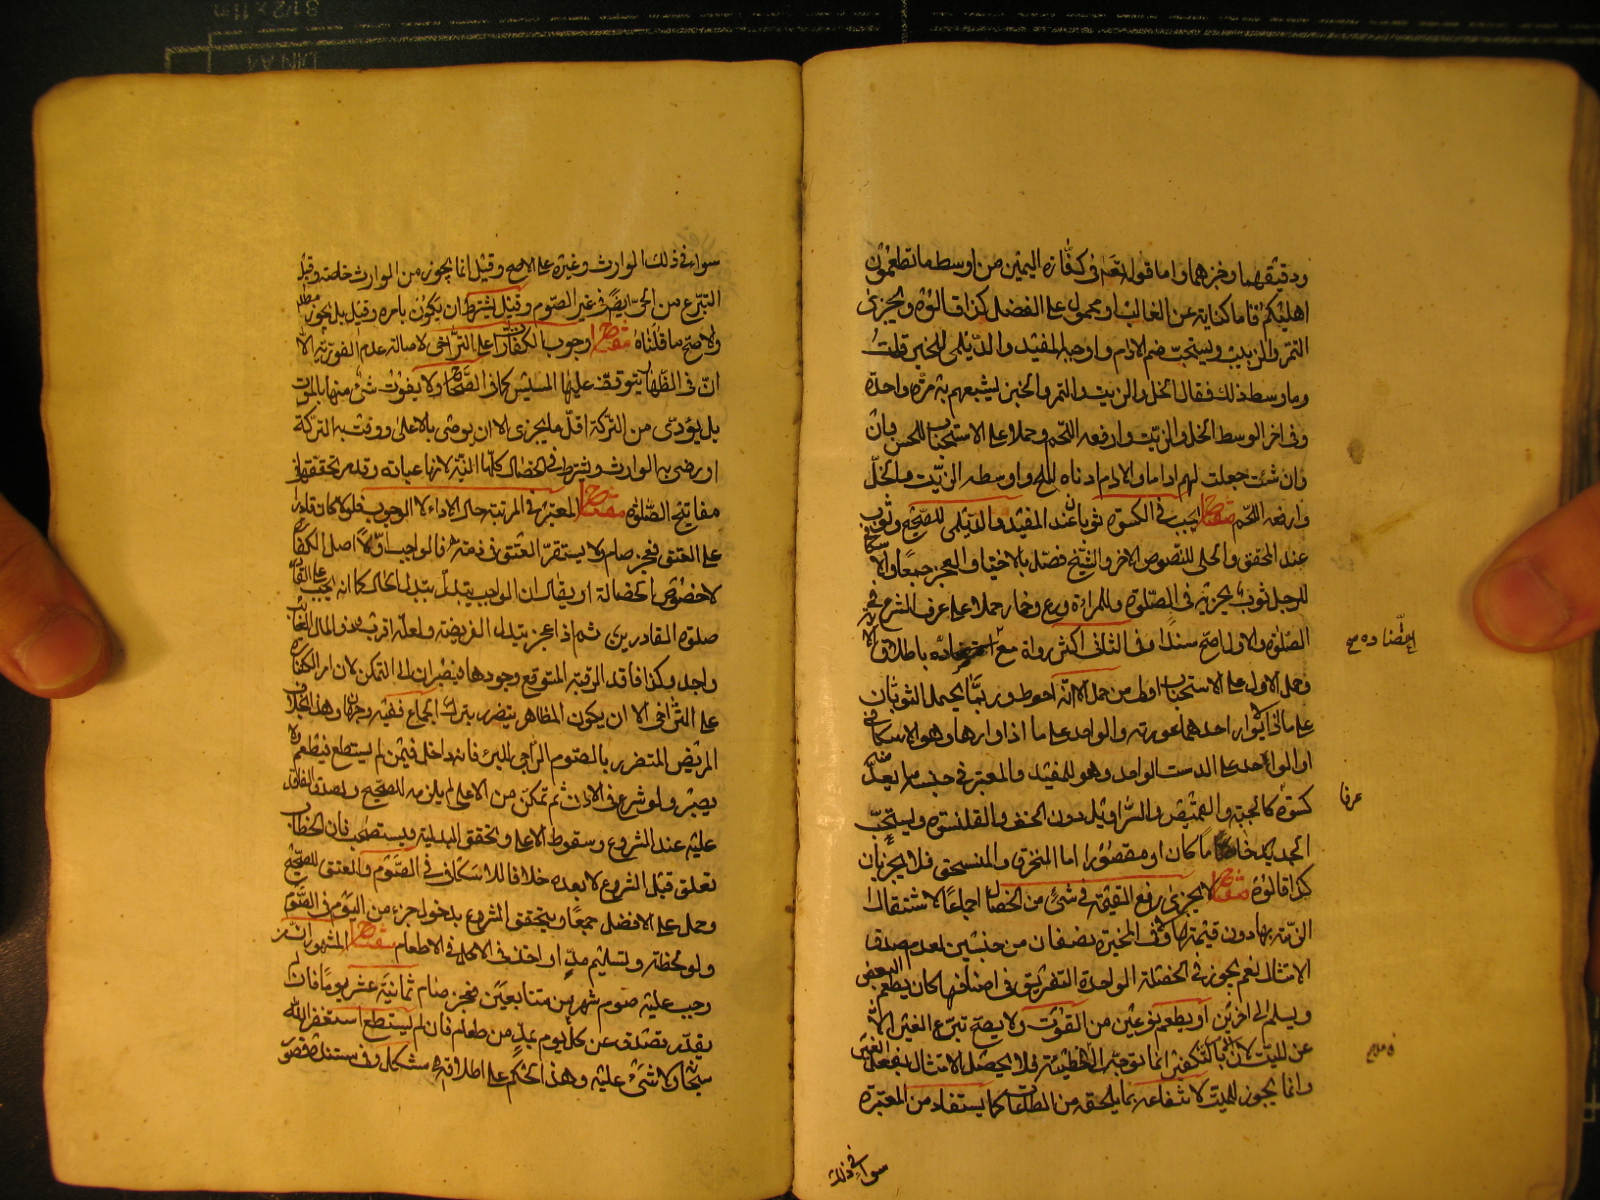 ودقيقهما وخبزهما واما قوله تعالى في كفارة اليمين من اوسط ما تطعمون
اهليكم فاما كناية عن الغالب او محمول على الفضل كذا قالوه ويجزي
التمر والزبيب ويستحب ضم الادام واوجبه المفيد والديلمي للخبر قلت
وما وسط ذلك فقال الخل والزيت والتمر والخبز تشبعهم به مرة واحدة
وفي اخر الوسط الخل والزيت وارفعه اللحم وحملا على الاستحباب للحسن وان
وان شئت جعلت لهم اداما والادام ادناه الملح واوسطه الزيت والخل
وارفعه اللحم مفتاح يجب في الكسوة ثوبان عند المفيد والديلمي للصحيح وثوب
عند المحقق والحلي للنصوص الاخر والشيخ فصل بالاختيار والعجز جمعا
للرجل ثوب يجزيه في الصلوة وللمراة درع وخمار حملا على عرف الشرع في
الصلوة والاول اصح سندا وفي الثاني اكثر رواة مع اعتضاده باطلاق
وحمل الاول على الاستحباب اولى من حمله لانه احوط وربما يحمل الثوبان
على ما اذا لم يوار احدهما عورته والواحد على ما اذا واراها وهو الاسكافي
او الواحد على الدست الواحد وهو للمفيد والمعتبر في جنسه ما يعد
كسوة كالجبة والقميص والسراويل دون الخف والقلنسوة ويستحب
الجديد خاما كان او مقصورا اما المنخرق والمنسحق فلا يجزيان
كذا قالوه مفتاح لا يجزي دفع القيمة في شئ من الخصال اجماعا لاشتغال
الذمة بها دون قيمتها وفي المخيرة نصفان من جنسين لعدم صدق
الامتثال نعم يجوز في الخصلة الواحدة التفريق في اصنافها كان يطعم البعض
ويسلم الى اخرين او يطعم نوعين من القوت ولا يصح تبرع الغير الا
عن الميت لان بالتكفير انما توجه الى الخطيئة فلا يحصل الامتثال بفعل الغير
وانما يجوز للميت لانتفاعه بما يلحقه من الطاعات كما يستفاد من المعتبرة
اعتضاده
عرفا
سواء في ذلك
سواء في ذلك الوارث وغيره على الاصح وقيل انما يجوز من الوارث خاصة وقيل
التبرع من الحي ايضا في غير الصوم وقيل يشترط ان يكون بامره وقيل بل يجوز مطلقا
والاصح ما قلناه مفتاح وجوب الكفارات على التراخي لاصالة عدم الفورية الا
ان في الظهار يتوقف عليها المسيس كما في الصحاح ولا يفوت شئ منها بالموت
بل يؤدى من التركة اقل ما يجزي الا ان يوصي بالاعلى ووفت به التركة
او رضي به الوارث ويشترط في الخصال كلها النية لانها عبادة وقد مر تحقيقها في
مفاتيح الصلوة مفتاح المعتبر في المرتبة حال الاداء لا الوجوب فلو كان قادرا
على العتق فعجز صام ولا يستقر العتق في ذمته فالواجب اولا اصل الكفارة
لا خصوص الخصلة او يقال ان الواجب يتبدل بتبدل الحال كما انه يجب على القادر
صلوة القادرين ثم اذا عجز يتبدل الفريضة ولعله اقرب وذو المال الغائب
واجد وكذا فاقد الرقبة المتوقع وجودها فيصبران الى التمكن لان امر الكفارة
على التراخي الا ان يكون المظاهر يتضرر بترك الجماع ففيه وجهان وهذا بخلاف
المريض المتضرر بالصوم الراجي للبرء فانه داخل فيمن لم يستطع فيطعم ولا
يصبر ولو شرع في الادنى ثم تمكن من الاعلى لم يلزمه للصحيح ولصدق الفاقد
عليه عند الشروع وسقوط الاعلى وتحقق البدلية ويستصحب فان الخطاب
تعلق قبل الشروع لا بعده خلافا للاسكافي في الصوم والعتق للصحيح
وحمل على الافضل جمعا ويتحقق الشروع بدخول جزء من اليوم في الصوم
ولو لحظة وتسليم مد او اخذ في الاكل في الاطعام مفتاح المشهور ان من
وجب عليه صوم شهرين متتابعين فعجز صام ثمانية عشر يوما فان لم
يقدر تصدق عن كل يوم بمد من طعام فان لم يستطع استغفر الله
سبحانه ولا شئ عليه وهذا الحكم على اطلاقه مشكل وفي مستنده قصور